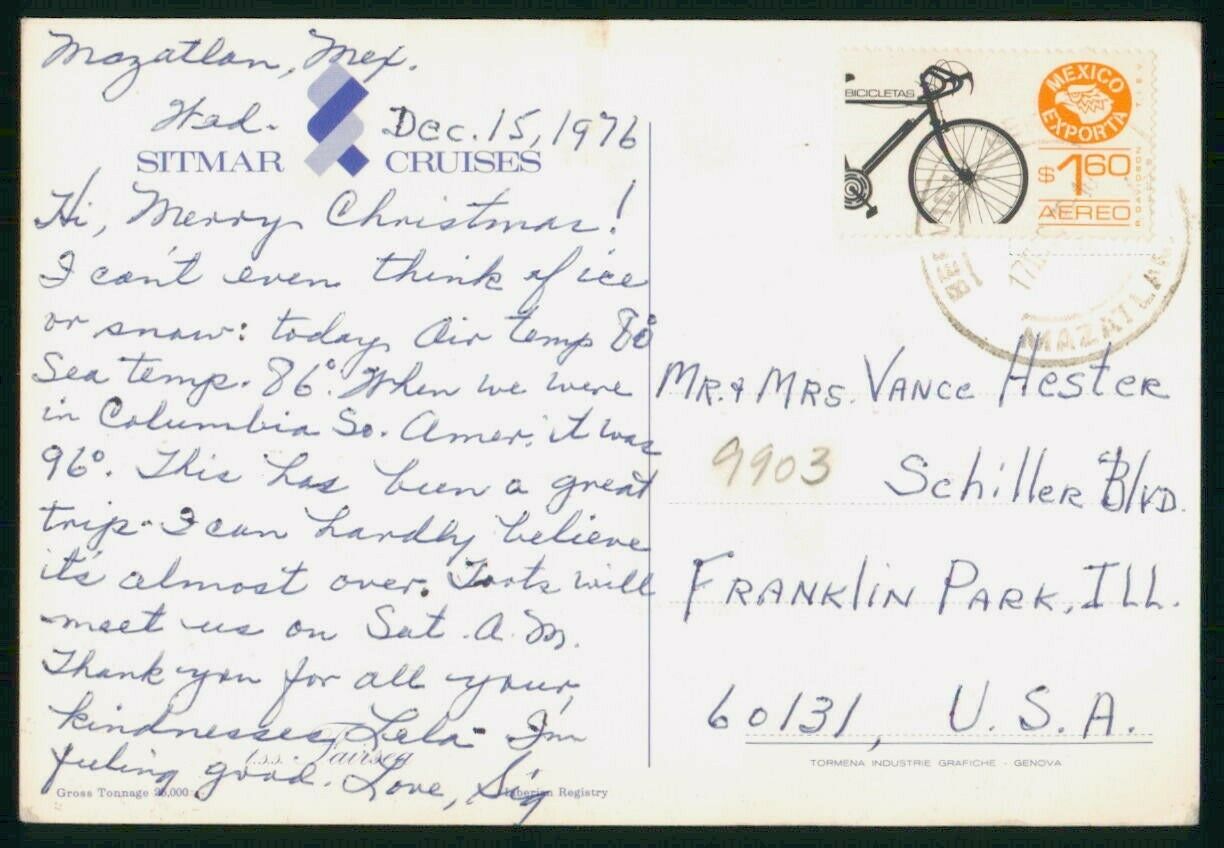 Mazatlan, Mex.
Wed. Dec. 15, 1976
SITMAR CRUISES
Hi, Merry Christmas!
I can't even think of ice
or snow: today Air temp 80°
Sea temp. 86°. When we were
in Columbia So. Amer. it was
96°. This has been a great
trip - I can hardly believe
it's almost over. Toots will
meet us on Sat. A.M.
Thank you for all your
kindnesses, Lela - I'm
feeling good. Love, Sig
t.s.s. Fairsea
Gross Tonnage 25,000 Liberian Registry
BICICLETAS
MEXICO
EXPORTA
$1.60
AEREO
R. DAVIDSON
T.I.E.V.
MAZATLAN
Mr. & Mrs. Vance Hester
9903 Schiller Blvd.
Franklin Park, Ill.
60131, U.S.A.
TORMENA INDUSTRIE GRAFICHE - GENOVA